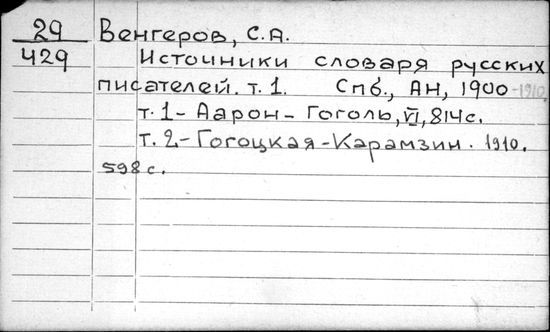 29 Венгеров, С.А.
429 Источники словаря русских
писателей. т. 1. Спб., АН, 1900-1910.
т. 1 - Аарон - Гоголь, VI, 814 с.
т. 2 - Гогоцкая - Карамзин. 1910.
598 с.